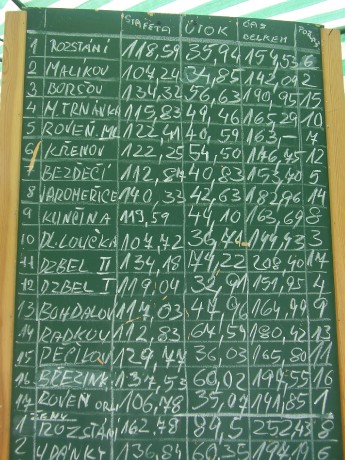 ŠTAFETA ÚTOK ČAS CELKEM POŘADÍ
1 ROZSTÁNÍ 118,59 35,94 154,53 6
2 MALÍKOV 107,24 34,85 142,09 2
3 BORŠOV 134,32 56,63 190,95 15
4 M.TRNÁVKA 115,83 49,46 165,29 10
5 ROVEŇ.ML 122,41 40,59 163,— 7
6 KŘENOV 122,25 54,50 176,75 12
7 BEZDĚČÍ 112,87 40,83 153,70 5
8 JAROMĚŘICE 140,33 42,63 182,96 14
9 KUNČINA 119,59 44,10 163,69 8
10 DL.LOUČKA 107,72 3
11 DZBEL II 134,18 74,22 208,40 17
12 DZBEL I 119,04 32,91 151,95 4
13 BOHDALOV 117,03 47,96 164,99 9
14 RADKOV 112,83 67,59 180,42 13
15 129,77 36,03 165,80 11
16 BŘEZINK 134,53 60,02 194,55 16
17 ROVEŇ 106,78 35,07 141,85 1
ŽENY
1 ROZSTÁNÍ 162,78 252,43
2 136,84 60,35 197,19